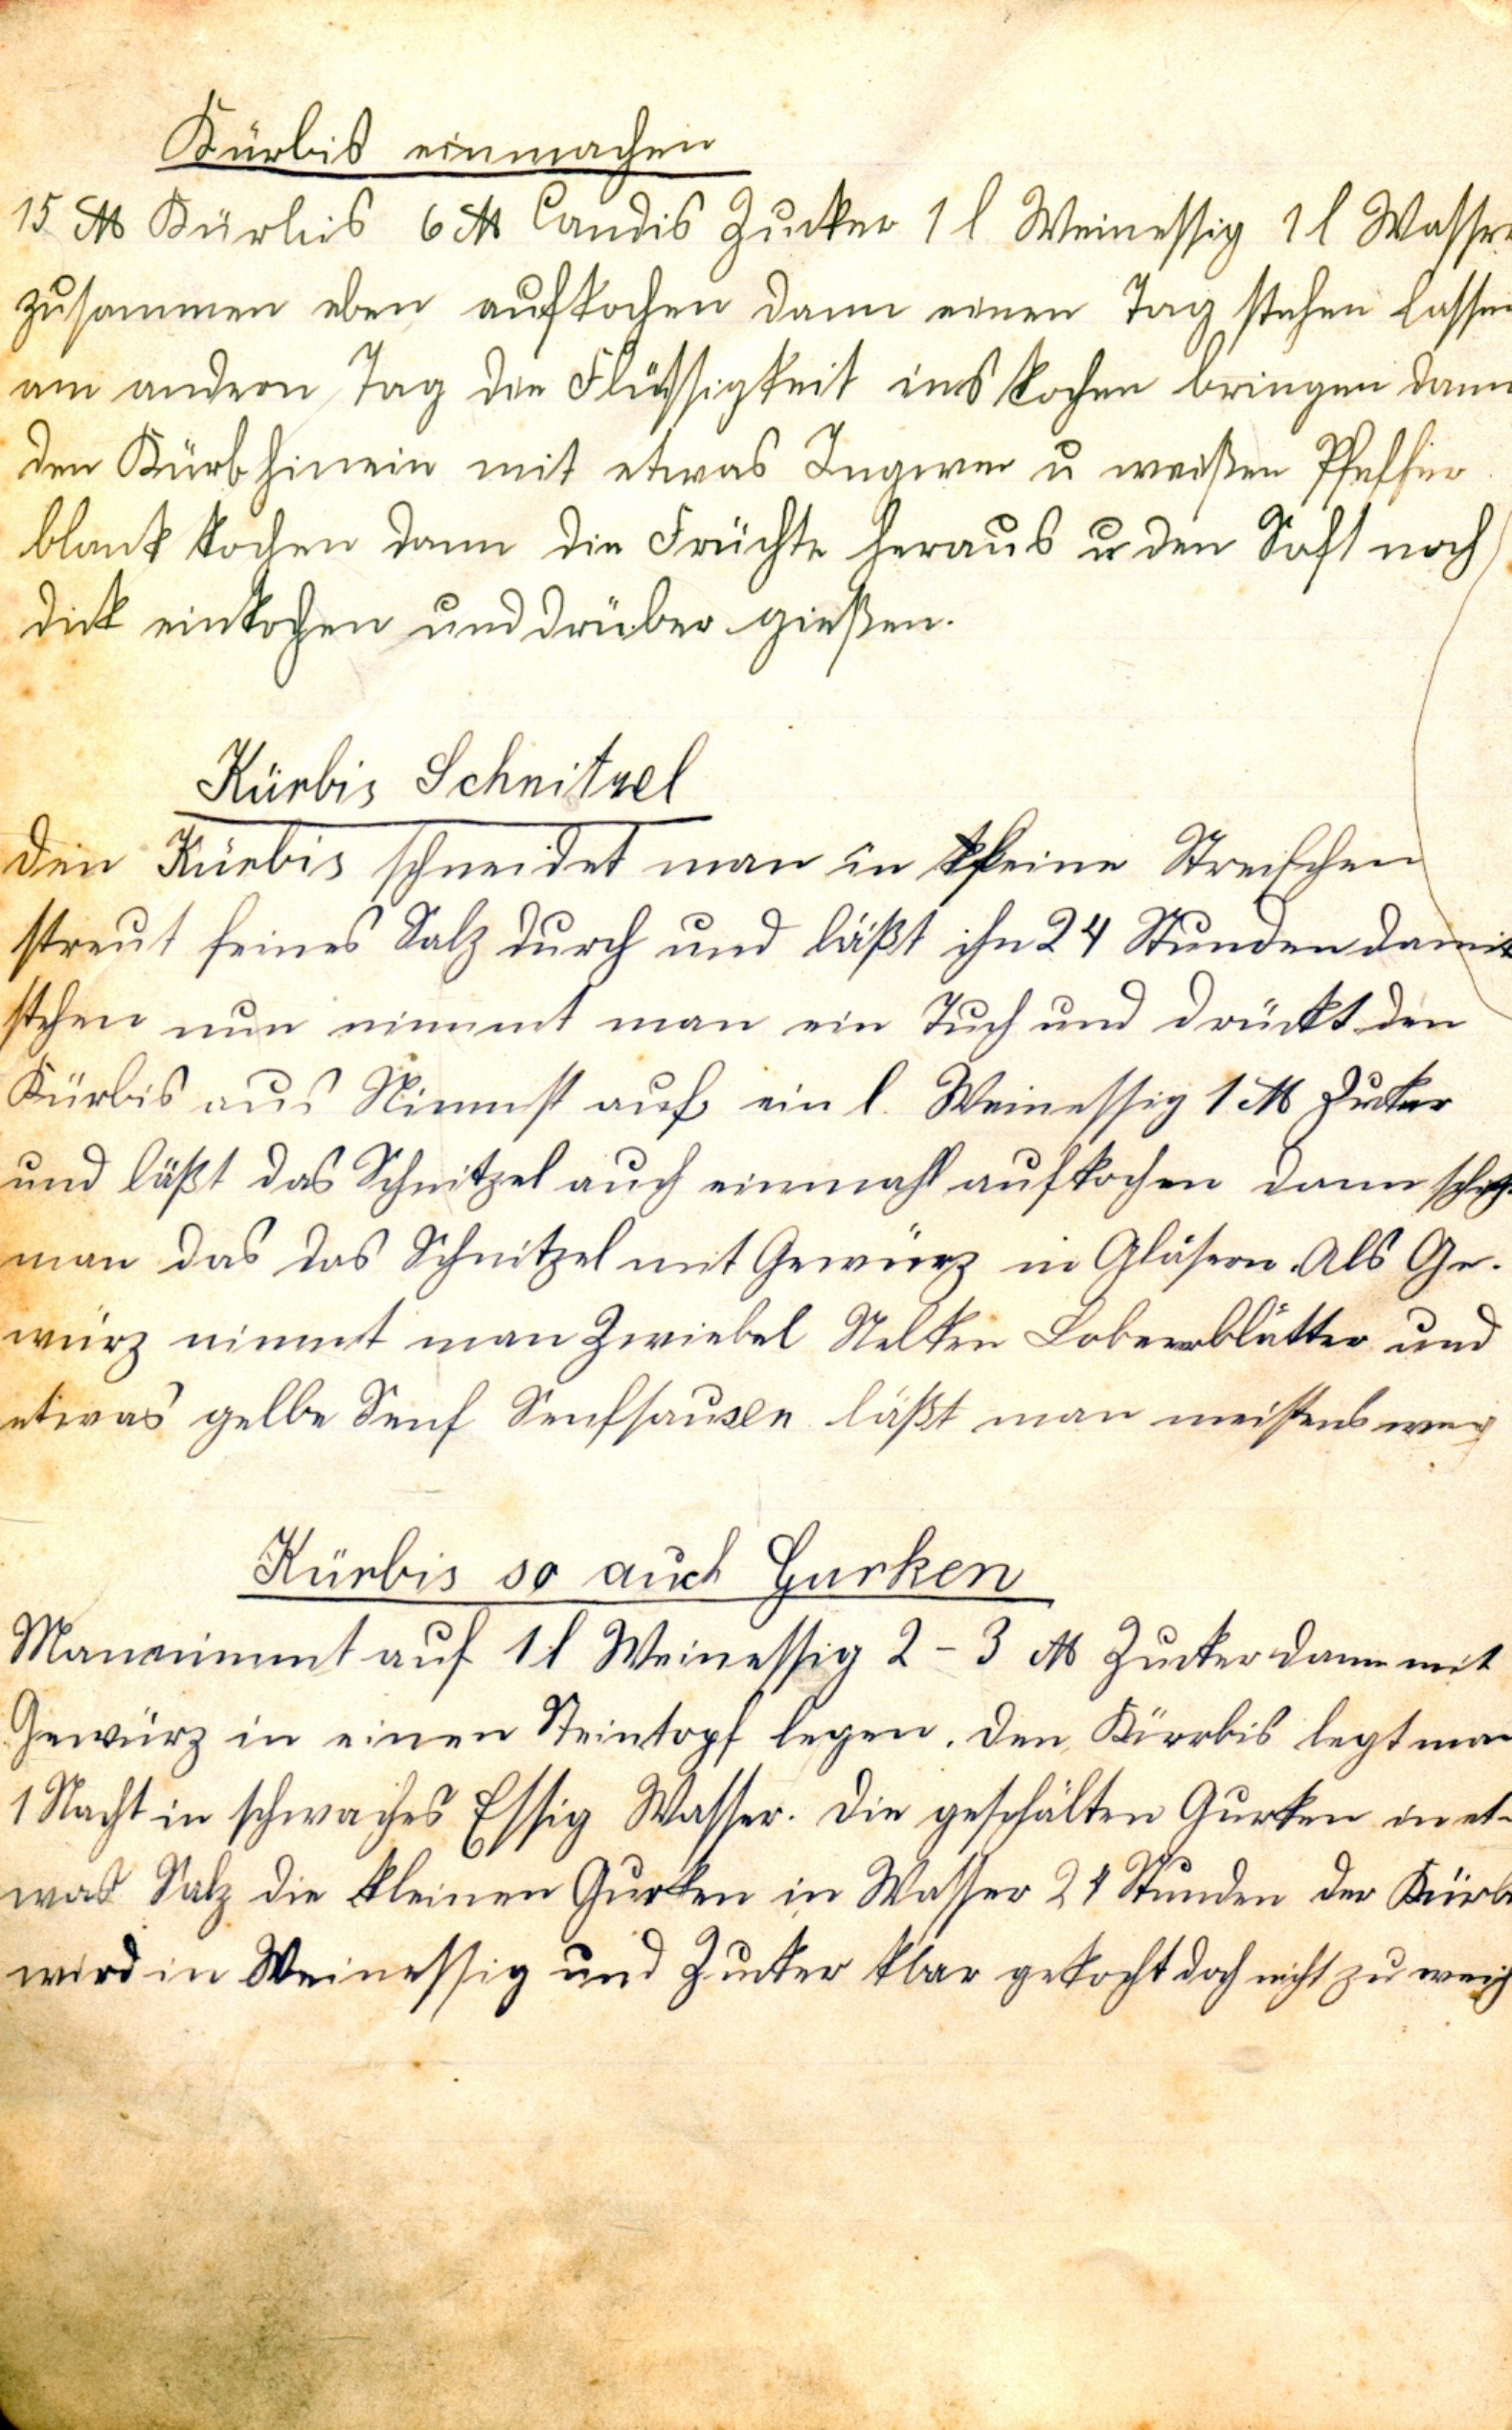 Kürbis einmachen
15 ℔ Kürbis 6 ℔ Candis Zucker 1 l Weinessig 1 l Wasser
zusammen eben aufkochen dann einen Tag stehen lassen
am andern Tag die Flüssigkeit ins kochen bringen dann
den Kürb hinein mit etwas Ingwer u weißen Pfeffer
blank kochen dann die Früchte heraus u den Saft noch
dick einkochen und drüber gießen.
Kürbis Schnitzel
Den Kürbis schneidet man in kleine Streifchen
streut feines Salz durch und läßt ihn 24 Stunden damit
stehen nun nimmt man ein Tuch und drückt den
Kürbis aus Nimmst auf ein l. Weinessig 1 ℔ Zucker
und läßt das Schnitzel auch einmahl aufkochen dann
man das das Schnitzel mit Gewürz in Gläsern. Als Ge-
würz nimmt man Zwiebel Nelken Loberrblätter und
etwas gelbe Senf Senfsausen läßt man meistens weg
Kürbis so auch Gurken
Man nimmt auf 1 l Weinessig 2 - 3 ℔ Zucker dann mit
Gewürz in einen Steintopf legen. Den Kürbis legt man
1 Nacht in schwaches Essig Wasser. Die geschälten Gurken in et-
was Salz die kleinen Gurken in Wasser 24 Stunden der Kürb
wird in Weinessig und Zucker klar gekocht doch nicht zu weich